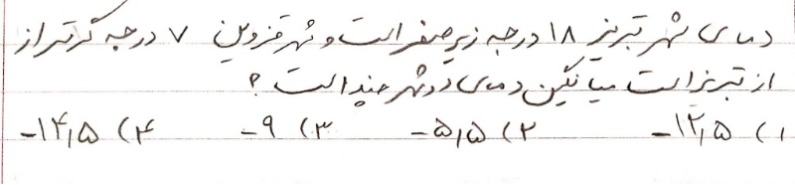 دمای شهر تبریز ۱۸ درجه زیر صفر است و شهر قزوین ۷ درجه گرمتر از
از تبریز است میانگین دمای دو شهر چند است ؟
۱) ۱۲٫۵- ۲) ۵٫۵- ۳) ۹- ۴) ۱۴٫۵-